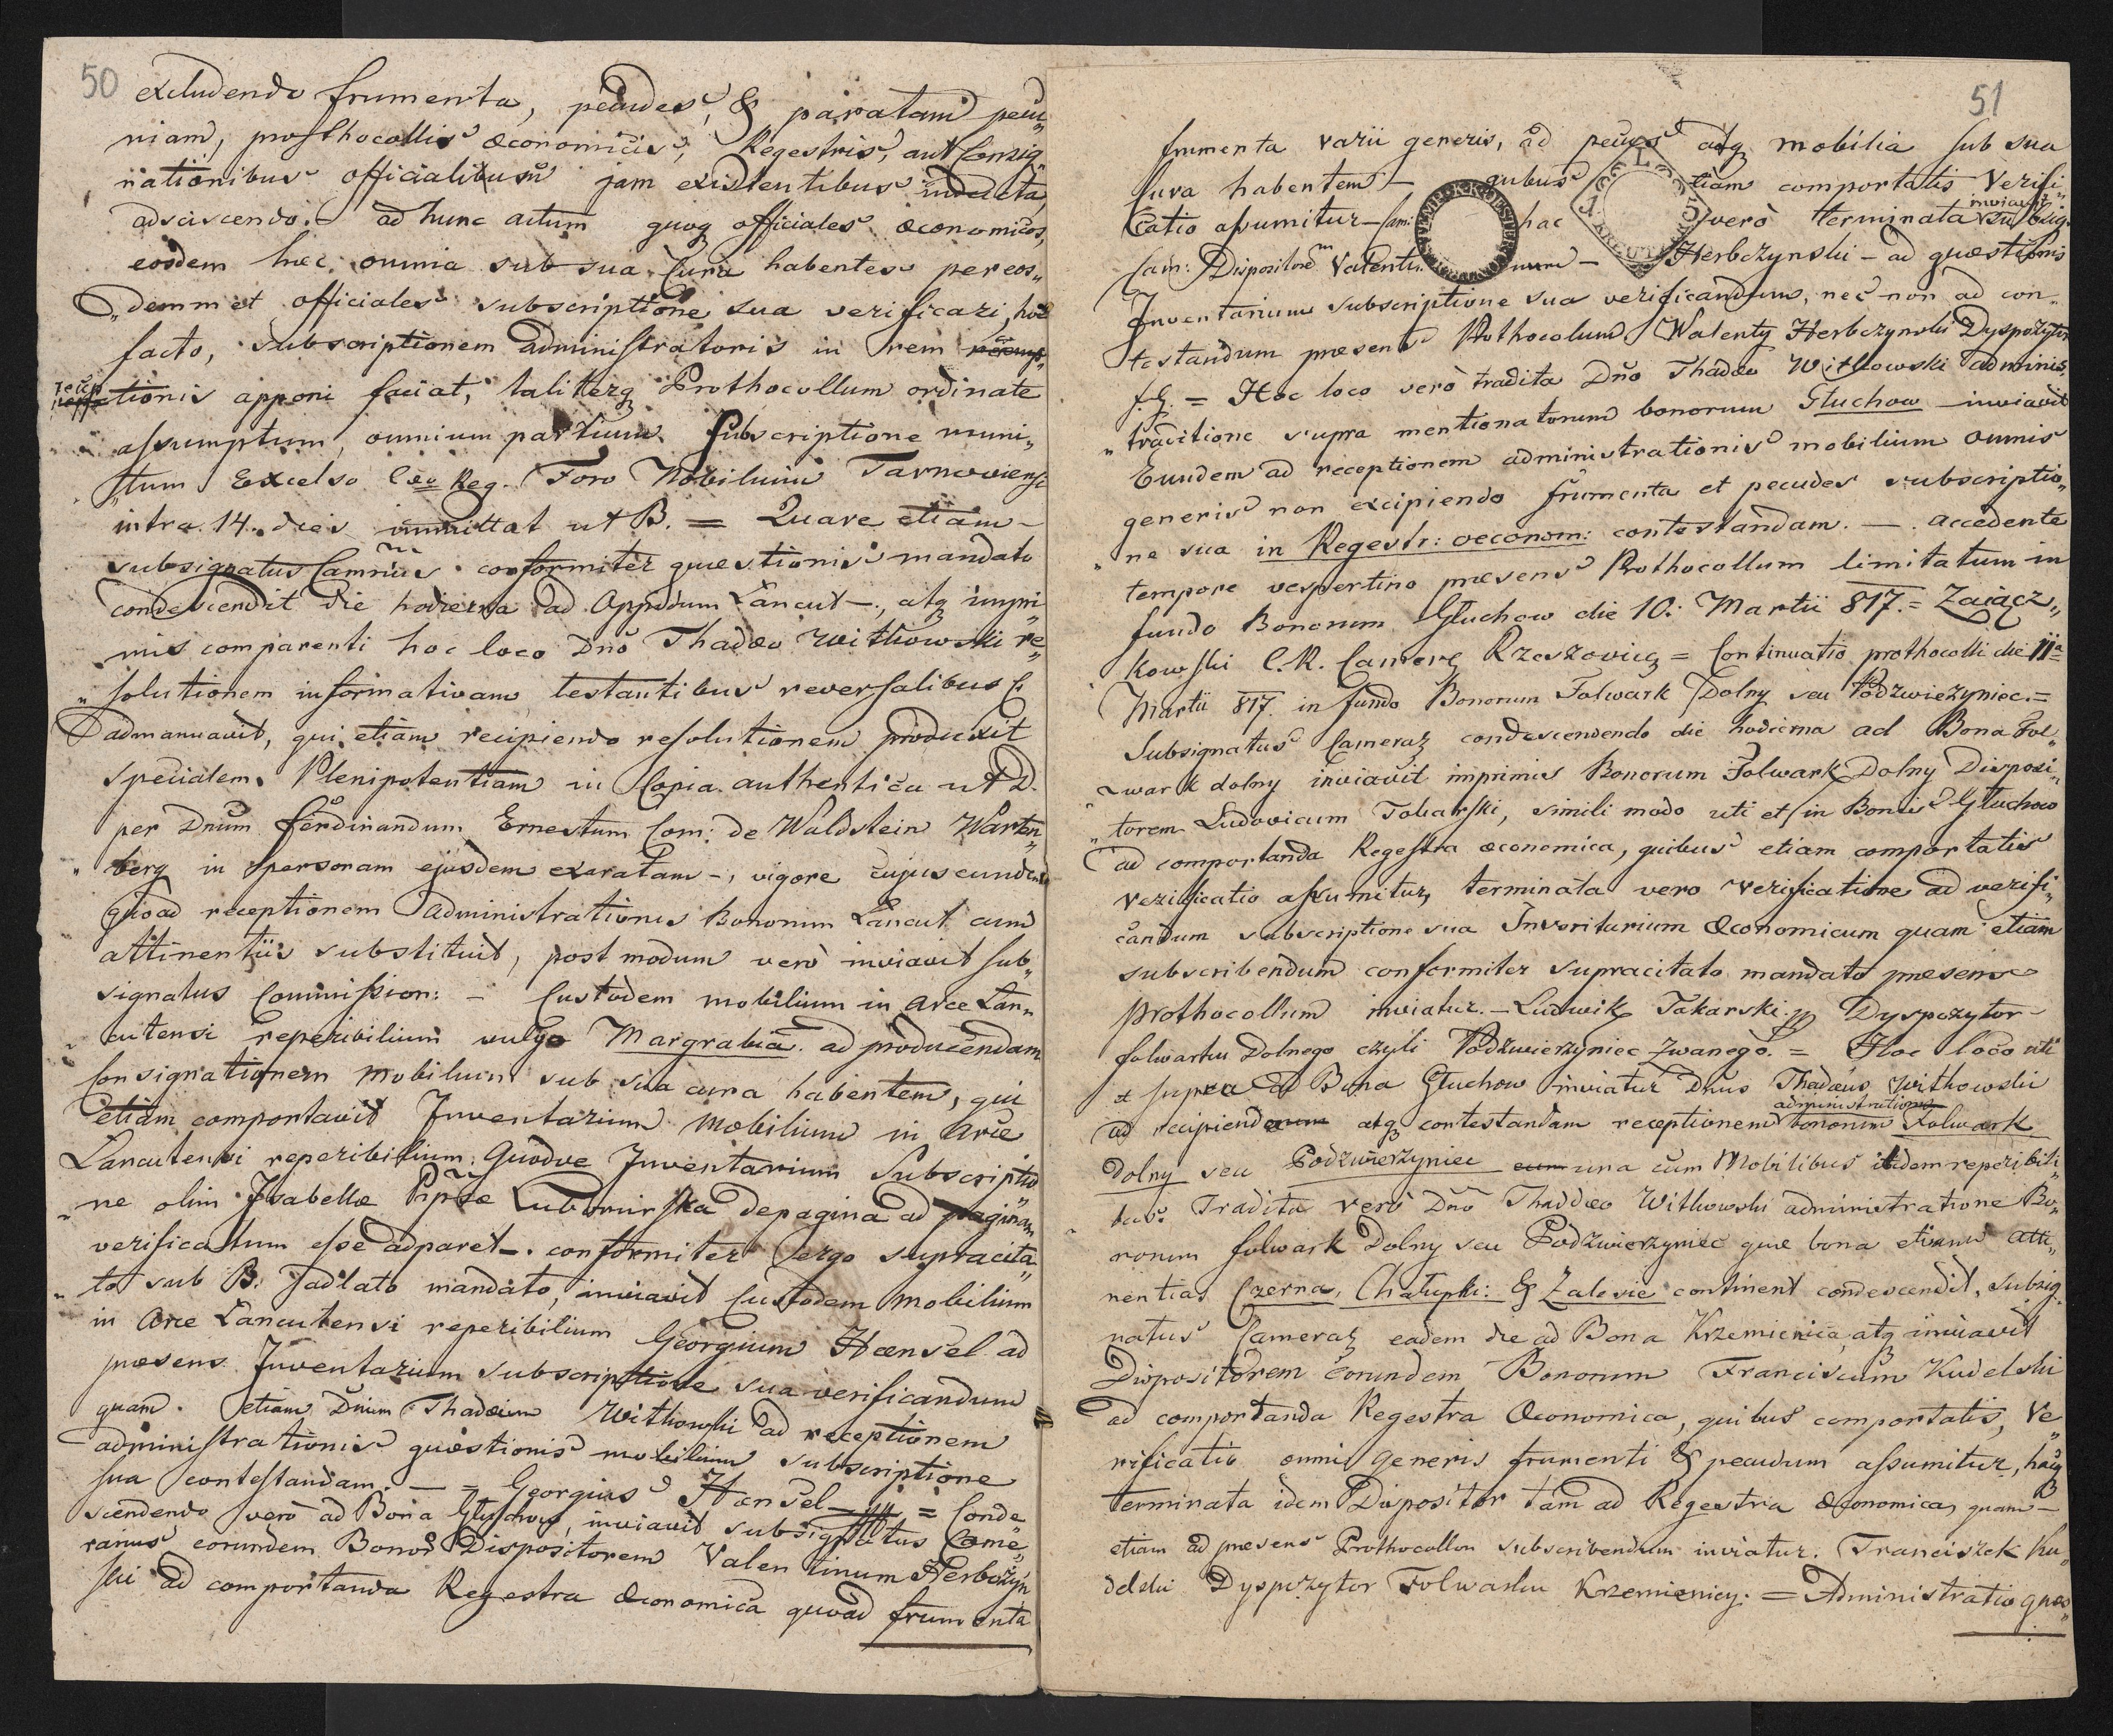 50
excludendo frumenta, pecudes, & paratam pecu„
niam, prothocollis œconomicis, Regestris, aut Consig„
nationibus officialibus jam existentibus
adsciscendo. ad hunc actum quoq officiales œconomicos,
eosdem hæc omnia sub sua Cura habentes per eos„
„demmet officiales subscriptione sua verificari, hoc
facto, subscriptionem administratoris in rem
recep„tionis apponi faciat, taliterq Prothocollum ordinate
assumptum, omnium partium Subscriptione muni„
„tum Excelso Cæo Reg. Foro Nobilium Tarnoviensi
intra 14. dies immittat ut B. = Quare etiam –
subsignatus Camrius conformiter quæstionis mandato
condescendit die hodierna ad Oppidum Łancut –, atq impri„
mis comparenti hoc loco Dno Thadæo Witkowski re„
„solutionem informativam testantibus reversalibus C.
admanuavit, qui etiam recipiendo resolutionem produxit
specialem Plenipotentiam in Copia authentica ut D.
per Dnum Ferdinandum Ernestum Com: de Waldstein Warten„
„berg in personam ejusdem exaratam –, vigore cujus eundem
quoad receptionem administrationis Bonorum Łancut cum
attinentiis substituit, post modum verò inviavit sub„
signatus Commission: – Custodem mobilium in Arce Łan„
„cutensi reperibilium vulgo Margrabia ad producendam
Consignationem mobilium sub sua cura habentem, qui
etiam comportavit Inventarium mobilium in Arce
Łancutensi reperibilium, Quodve Inventarium Subscriptio„
„ne olim Isabellæ Pipsæ Lubomirska de pagina ad paginam
verificatum esse adparet –. conformiter ergo supracita„
„to sub B. adlato mandato, inviavit Custodem mobilium
in Arce Łancutensi reperibilium Georgium Hænsel ad
præsens Inventarium subscriptione sua verificandum
quam etiam Dnum Thadæum Witkowski ad receptionem
administrationis quæstionis mobilium subscriptione
sua contestandam. – = Georgius Hænsel = Conde„
scendendo verò ad Bona Głuchow, inviavit subsignatus Came„
rarius eorundem Bonor Dispositorem Valentinum Herbczyn„
ski ad comportanda Regestra Œconomica quoad frumenta
51
frumenta varii generis, ad pecudes atq mobilia sub sua
Cura habentem – quibus etiam comportatis Verifi„
Catio assumitur – hac verò terminata inviavit
Cam: Dispositorem Valentin Herbczynski – ad quæstionis
Inventarium subscriptione sua verificandum, nec non ad con„
testandum præsens Prothocolum Walenty Herbczynski Dyspozytor
f. G. = Hoc loco verò tradita Dno Thadæo Witkowski adminis„
„traditione supra mentionatorum bonorum Głuchow inviavit
Eundem ad receptionem administrationis mobilium omnis
generis non excipiendo frumenta et pecudes subscriptio„
„ne sua in Regestr: oeconom: contestandam. –. accedente
tempore vespertino præsens Prothocollum limitatum in
fundo Bonorum Głuchow die 10. Martii 817. = Zaiącz„
kowski C. R. Camerq Rzeszovieq = Continuatio prothocolli die 11a
Martii 817. in fundo Bonorum Folwark Dolny seu Podzwierzyniec. =
Subsignatus Cameraq condescendendo die hodierna ad Bona Fol„
„wark dolny inviavit imprimis Bonorum Folwark Dolny Disposi„
„torem Ludovicum Tokarski, simili modo uti et in Bonis Głuchow
ad comportanda Regestra œconomica, quibus etiam comportatis
verificatio assumitur, terminata vero verificatione ad verifi„
candum subscriptione sua Inventarium Œconomicum quam etiam
subscribendum conformiter supracitato mandato præsens
Prothocollum inviatur. – Ludwik Takarski Dyspozytor –
folwarku Dolnego czyli Podzwierzyniec zwanego. = Hoc loco uti
et supra ad Bona Głuchow inviatur Dnus Thadæus Witkowski
ad recipiendam atq contestandam receptionem administrationis bonorum Folwark
Dolny seu Podzwierzyniec una cum Mobilibus ibidem reperibili„
„bus. Tradita verò Dno Thaddæo Witkowski administratione Bo„
norum folwark Dolny seu Podzwierzyniec quæ bona etiam atti„
nentias Czerna, Chałupki: & Zalesie continent condescendit, subsig„
natus Cameraq eadem die ad Bona Krzemienica, atq inviavit
Dispositorem eorundem Bonorum Franciscum Kudelski
ad comportanda Regestra Œconomica, quibus comportatis, Ve„
rificatio omni generis frumenti & pecudum assumitur, hacq
terminata idem Dispositor tam ad Regestra Œconomica, quam –
etiam ad præsens Prothocollon subscribendum inviatur. Franciszek Ku„
delski Dyspozytor Folwarku Krzemienicy. = Administratio quæs„